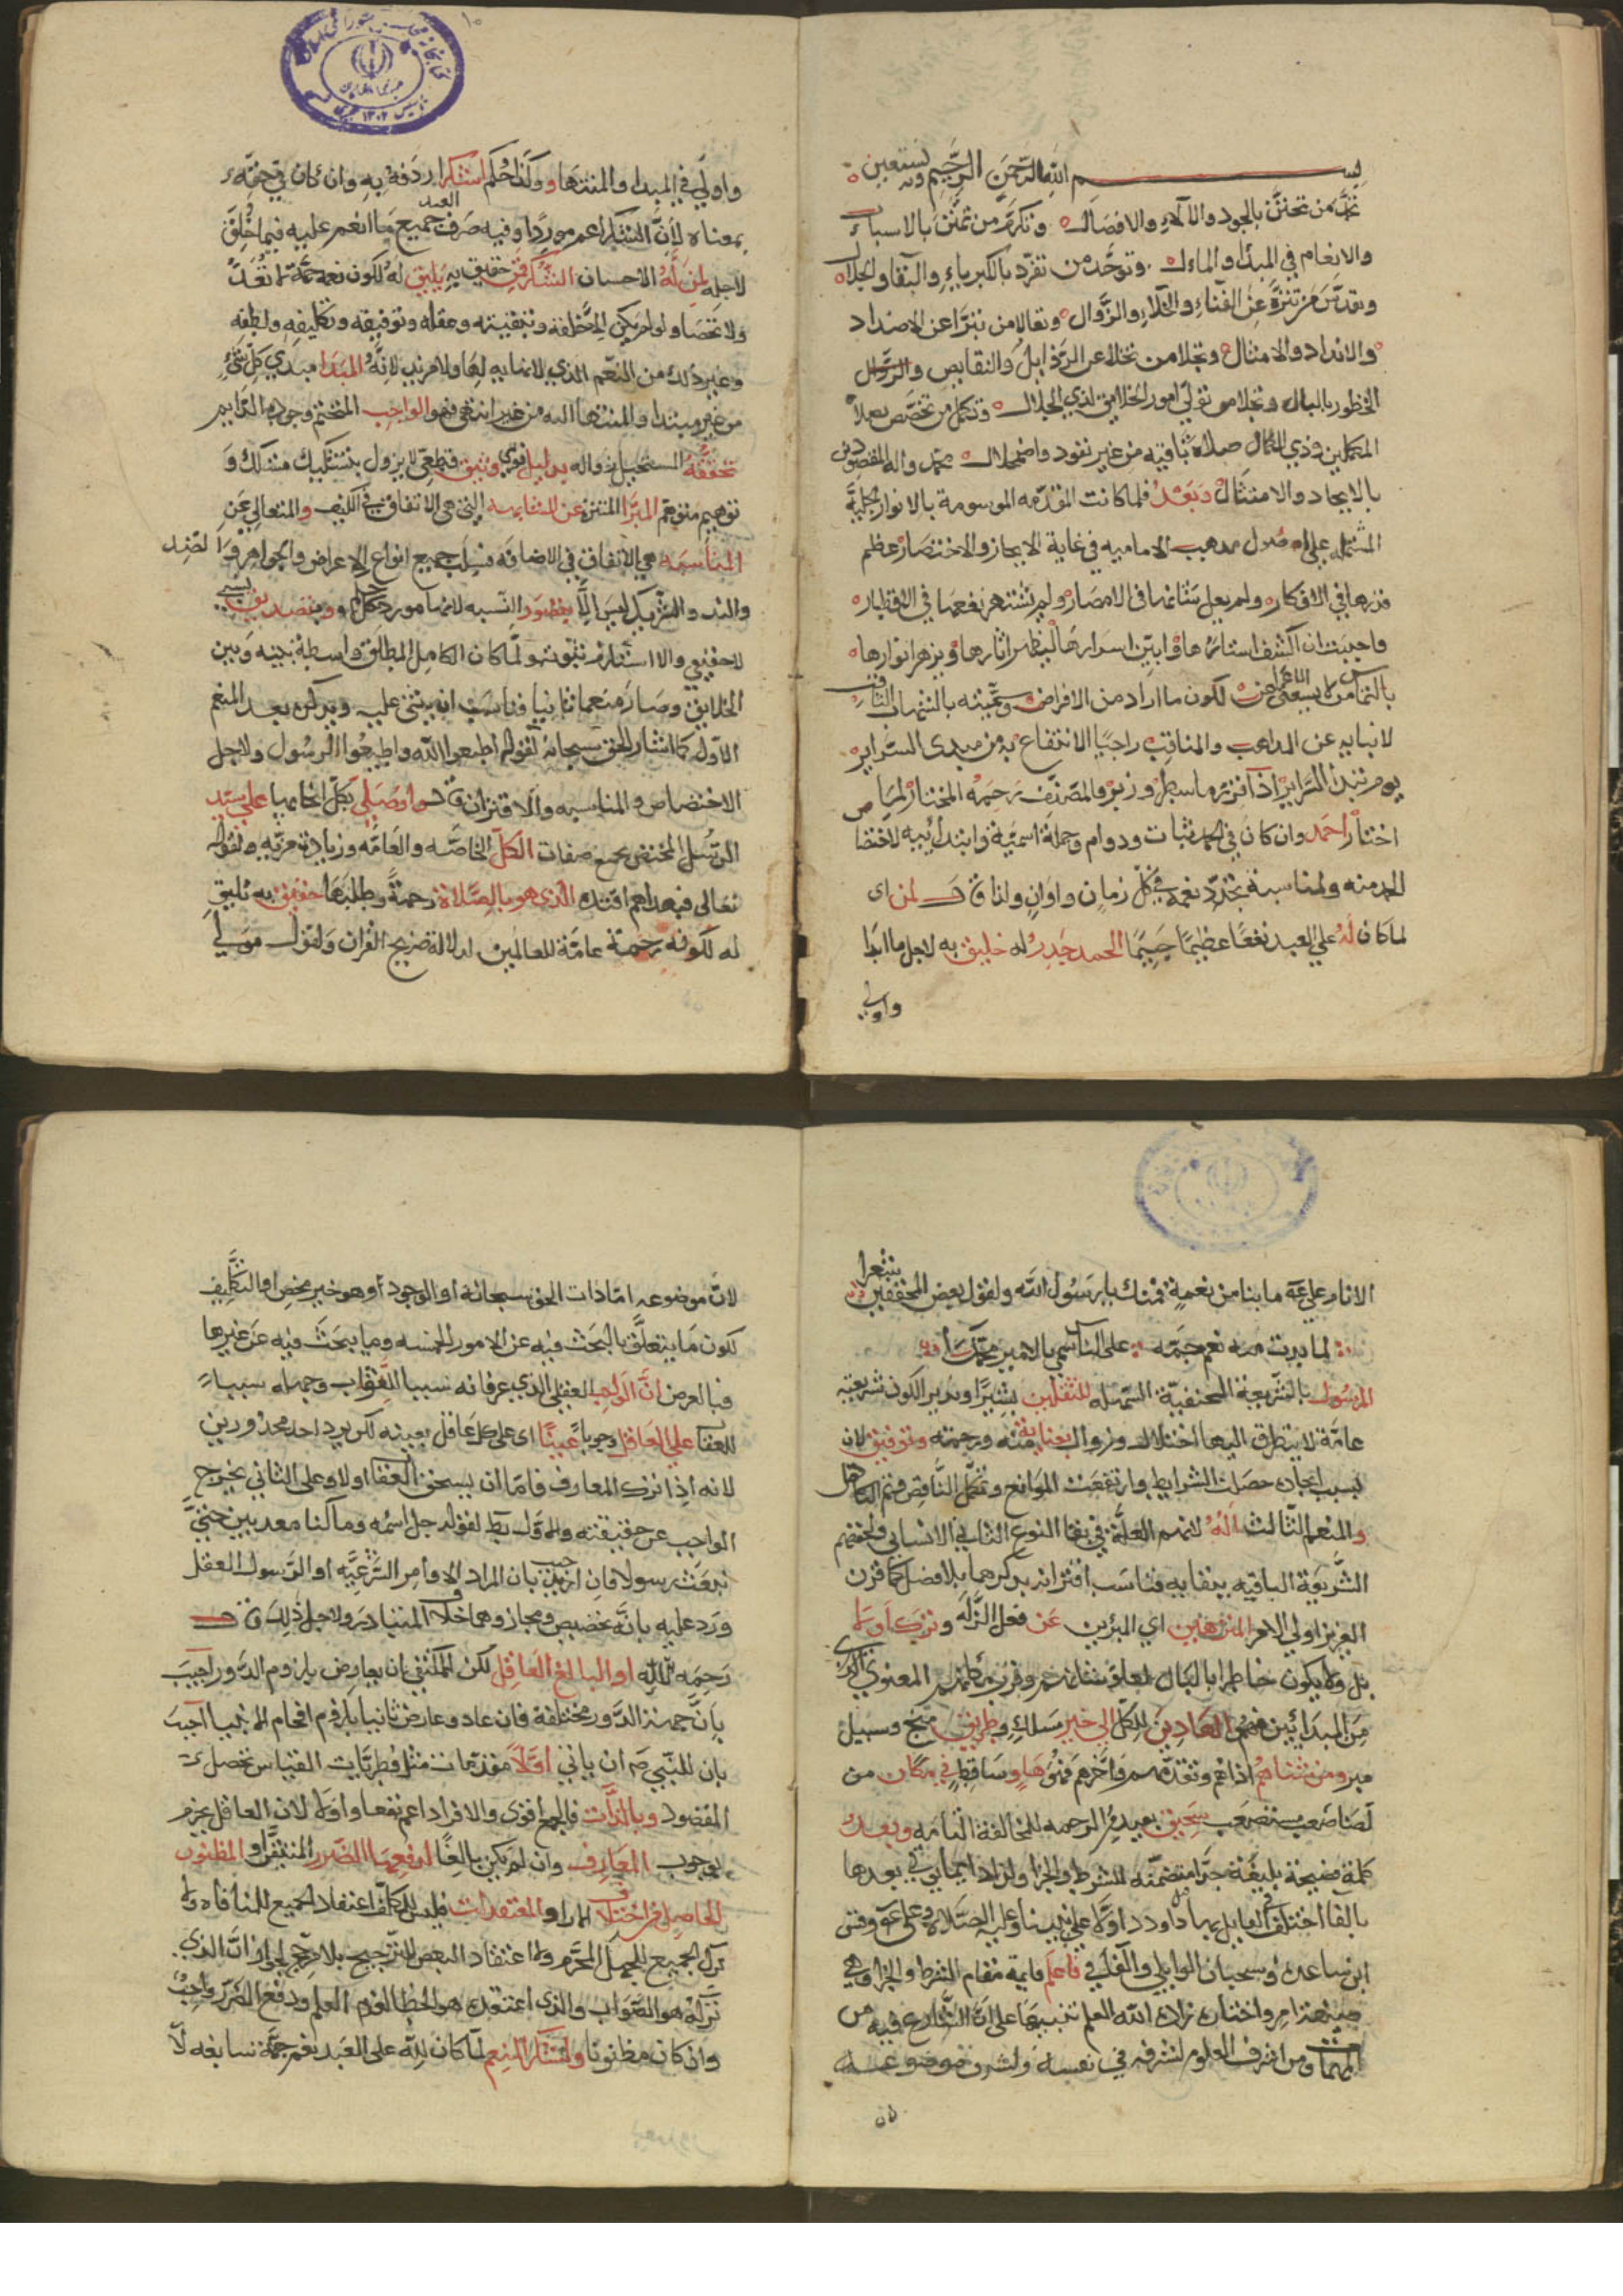 بسم الله الرحمن الرحيم وبه نستعين
نحمد من تحنن بالجود والآلاء والافضال وتكرم من تمنن بالاسباء
والانعام في المبدأ والمال وتوحد من تفرد بالكبرياء والبقاء والجلال
وتقدس من تنزه عن الفناء والخلاء والزوال وتعالا من تبرا عن الاضداد
والانداد والامثال وتجلا من تخلا عن الرذايل والنقايص والزوال
الخطور بالبال وتجلا من تولى امور الخلايق لذي الجلال وتكمل من تخصص بعلا
المكملين وذي الكمال صلاة باقيه من غير نفود واضمحلال محمد واله المقصودين
بالايجاد والامتثال وبعد فلما كانت المقدمه الموسومة بالانوار الجلية
المشتمله على اصول مذهب الاماميه في غاية الايجاز والاختصار عظم
قدرها في الافكار ولم يعل شانها في الامصار ولم يشتهر نفعها في الاقطار
فاحببت ان اكشف استارها وابين اسرارها ليظهر اثارها ويزهر انوارها
بالتماس من لا يسعني الا اعراض عنه لكون ما اراد من الافراض وسميته بالشهاب الثاقب
لانبايه عن المذاهب والمناقب راجيا الانتفاع به من مبدى السراير
يوم تبدى السراير اذ آنزبر ما سطر وزبر والمصنف رحمه المختار لما
اختار احمد وان كان في الحمد ثبات ودوام وجملة اسمية وابتدائيه لاختصا ص
الحمد منه ولمناسبة تجدد نعمه في كل زمان واوان ولذا قال لمن اى
لما كان له على العبد نفعا عظيما جسيما الحمد جدير له خليق به لاجل ما ابدا
واولى
واولى في المبدا والمنتها وكذا حكم اشكرا ردفه به وان كان في حقه
بمعناه لان الشكر اعم موردا وفيه صرف العبد جميع ما انعم عليه فيما خلق
لاجله لمن له الاحسان الشكر حقيق به يليق له لكون نعمه جمة لا تعد
ولا تحصا ولو لم يكن الا خلقه وتبقيته وعقله وتوفيقه وتكليفه ولطفه
وغير ذلك من النعم الذي لا نهايه لها ولا مزيد لانه المبدا مبدي كل شيء
من غير مبتدا والمنتها اليه من غير انتهى فهو الواجب المتحتم وجوده الدايم
تحققه المستحيل زواله بدليل قوي وثيق قطعي لا يزول بتشكيك مشكك و
توهيم متوهم المبرا المنتزه عن المشابهه التي هي الاتفاق في الكيف والمتعالي عن
المناسبه هي الاتفاق في الاضافه فسلب جميع انواع الاعراض والجواهر والضد
والند والشريك ليس الا بتصور النسبه لانها مورد حكم وبتصديق نسبي
لا حقيقي والا استلزم ثبوته ولما كان الكامل المطلق واسطة بينه وبين
الخلايق وصار منعما ثانيا فناسب ان يثنى عليه ويذكر بعد المنعم
الاول كما اشار الحق سبحانه لقوله اطيعوا الله واطيعوا الرسول ولاجل
الاختصاص والمناسبه والاقتران قال واوصيلي بكل انحائها على سيد
الرسل المختص بجميع صفات الكل الخاصه والعامه وزيادة مزيه ولقوله
تعالى فبهداهم اقتده الذي هو بالصلاة رحمة وطلبها حقيق به يليق
له لكونه رحمة عامة للعالمين لدلالة صريح القران ولقول مولى
الانام على عه ما بنا من نعمة فمنك يا رسول الله ولقول بعض المحققين شعرا
لما بدت منه نعم جمه على السمي بالامير محمد
الرسول بالشريعة الحنفية السمله للثقلين بشيرا ونذير الكون شريعته
عامة لا يتطرق اليها اختلال وزوال بعناية منه ورحمته وتوفيق لان
بسبب ايجاده حصلت الشرايط وارتفعت الموانع وتكمل الناقص وتم الكامل
والمنعم الثالث اله لتتميم العلة في بقا النوع الثاني الانساني ولحفظهم
الشريعة الباقيه ببقايه فناسب اقتران بذكرهما بلا فصل كما قرن
العزيز اولي الامر المنزهين اي المبرئين عن فعل الزله وترك اولى
بل ولا يكون خاطرا بالبال لعلو شانهم وقرب مكانهم المعنوي الذي
من المبدا ئين فهم الهادين للكل الى خير مسلك وطريق منهج وسبيل
مبر ومن شناهم اذا هم وتقدمهم وآخرهم فهو هاو وساقط في مكان من
لصا صعب مستصعب سحيق بعيد من الرحمه للمخالفة التامه وبعد
كلمة فصيحة بليغة جرا متضمنه للشرط والجزا ولزاد اتيانى في بعدها
بالفا اختلف القايل بها فاول داود اولا على نبينا وعليه السلام وعلى عه وقس
ابن ساعده وسحبان الوايلي والفا في فاعلم قايمة مقام الشرط والجزا وهي
صيغة امر واختاره زاده الله العلم تنبيها على ان الشارع فيه من
المهمات ومن اشرف العلوم لشرفه في نفسه ولشرف موضوعه
لان
لان موضوعه اما ذات الحق سبحانه او الوجود او هو خير محض او التكليف
لكون ما يتعلق بالبحث فيه عن الامور الخمسه وما يبحث فيه عن غيرها
فبالعرض ان الواجب العقلي الذي عرفانه سببا للثواب وجهله سببا
للعقاب على العاقل وجوبا عينا اى على كل عاقل بعينه لكن يرد احد محذورين
لانه اذا ترك المعارف فاما ان يستحق العقا اولا وعلى الثاني يخرج
الواجب عن حقيقته والاول بط لقوله جل اسمه وما كنا معذبين حتى
نبعث رسولا فان اجيب بان المراد الاوامر الشرعيه او الرسول العقل
ورد عليه بانه تخصيص ومجاز وهما خلاف المتبادر ولاجل ذلك قال
رحمه الله او البالغ العاقل لكن للمكتفي ان يعارض بلزوم الدور اجيب
بان جهة الدور مختلفة فان عاد وعارض ثانيا بلزوم افحام الانبيا اجيب
بان للنبي ص ان ياتي اولا مقدمات مثل فطريات القياس تحصل
المقصود وبالذات فالجمع اقوى والافراد اعم نفعا واولى لان العاقل يجزم
بوجوب المعارف وان لم يكن بالغا لدفعها الضرر المتيقن او المظنون
الحاصل من اختلاف الارا والمعتقدات فليس للمكلف اعتقاد الجميع للمنافاه ولا
ترك الجميع للجهل المحرم ولا اعتقاد البعض للترجيح بلا مرجح لجواز ان الذي
تركه هو الصواب والذي اعتقده هو الخطا لعدم العلم ودفع الضرر واجب
وان كان مظنونا ولشكر المنعم لما كان لله على العبد نعم جمة سابغه لا